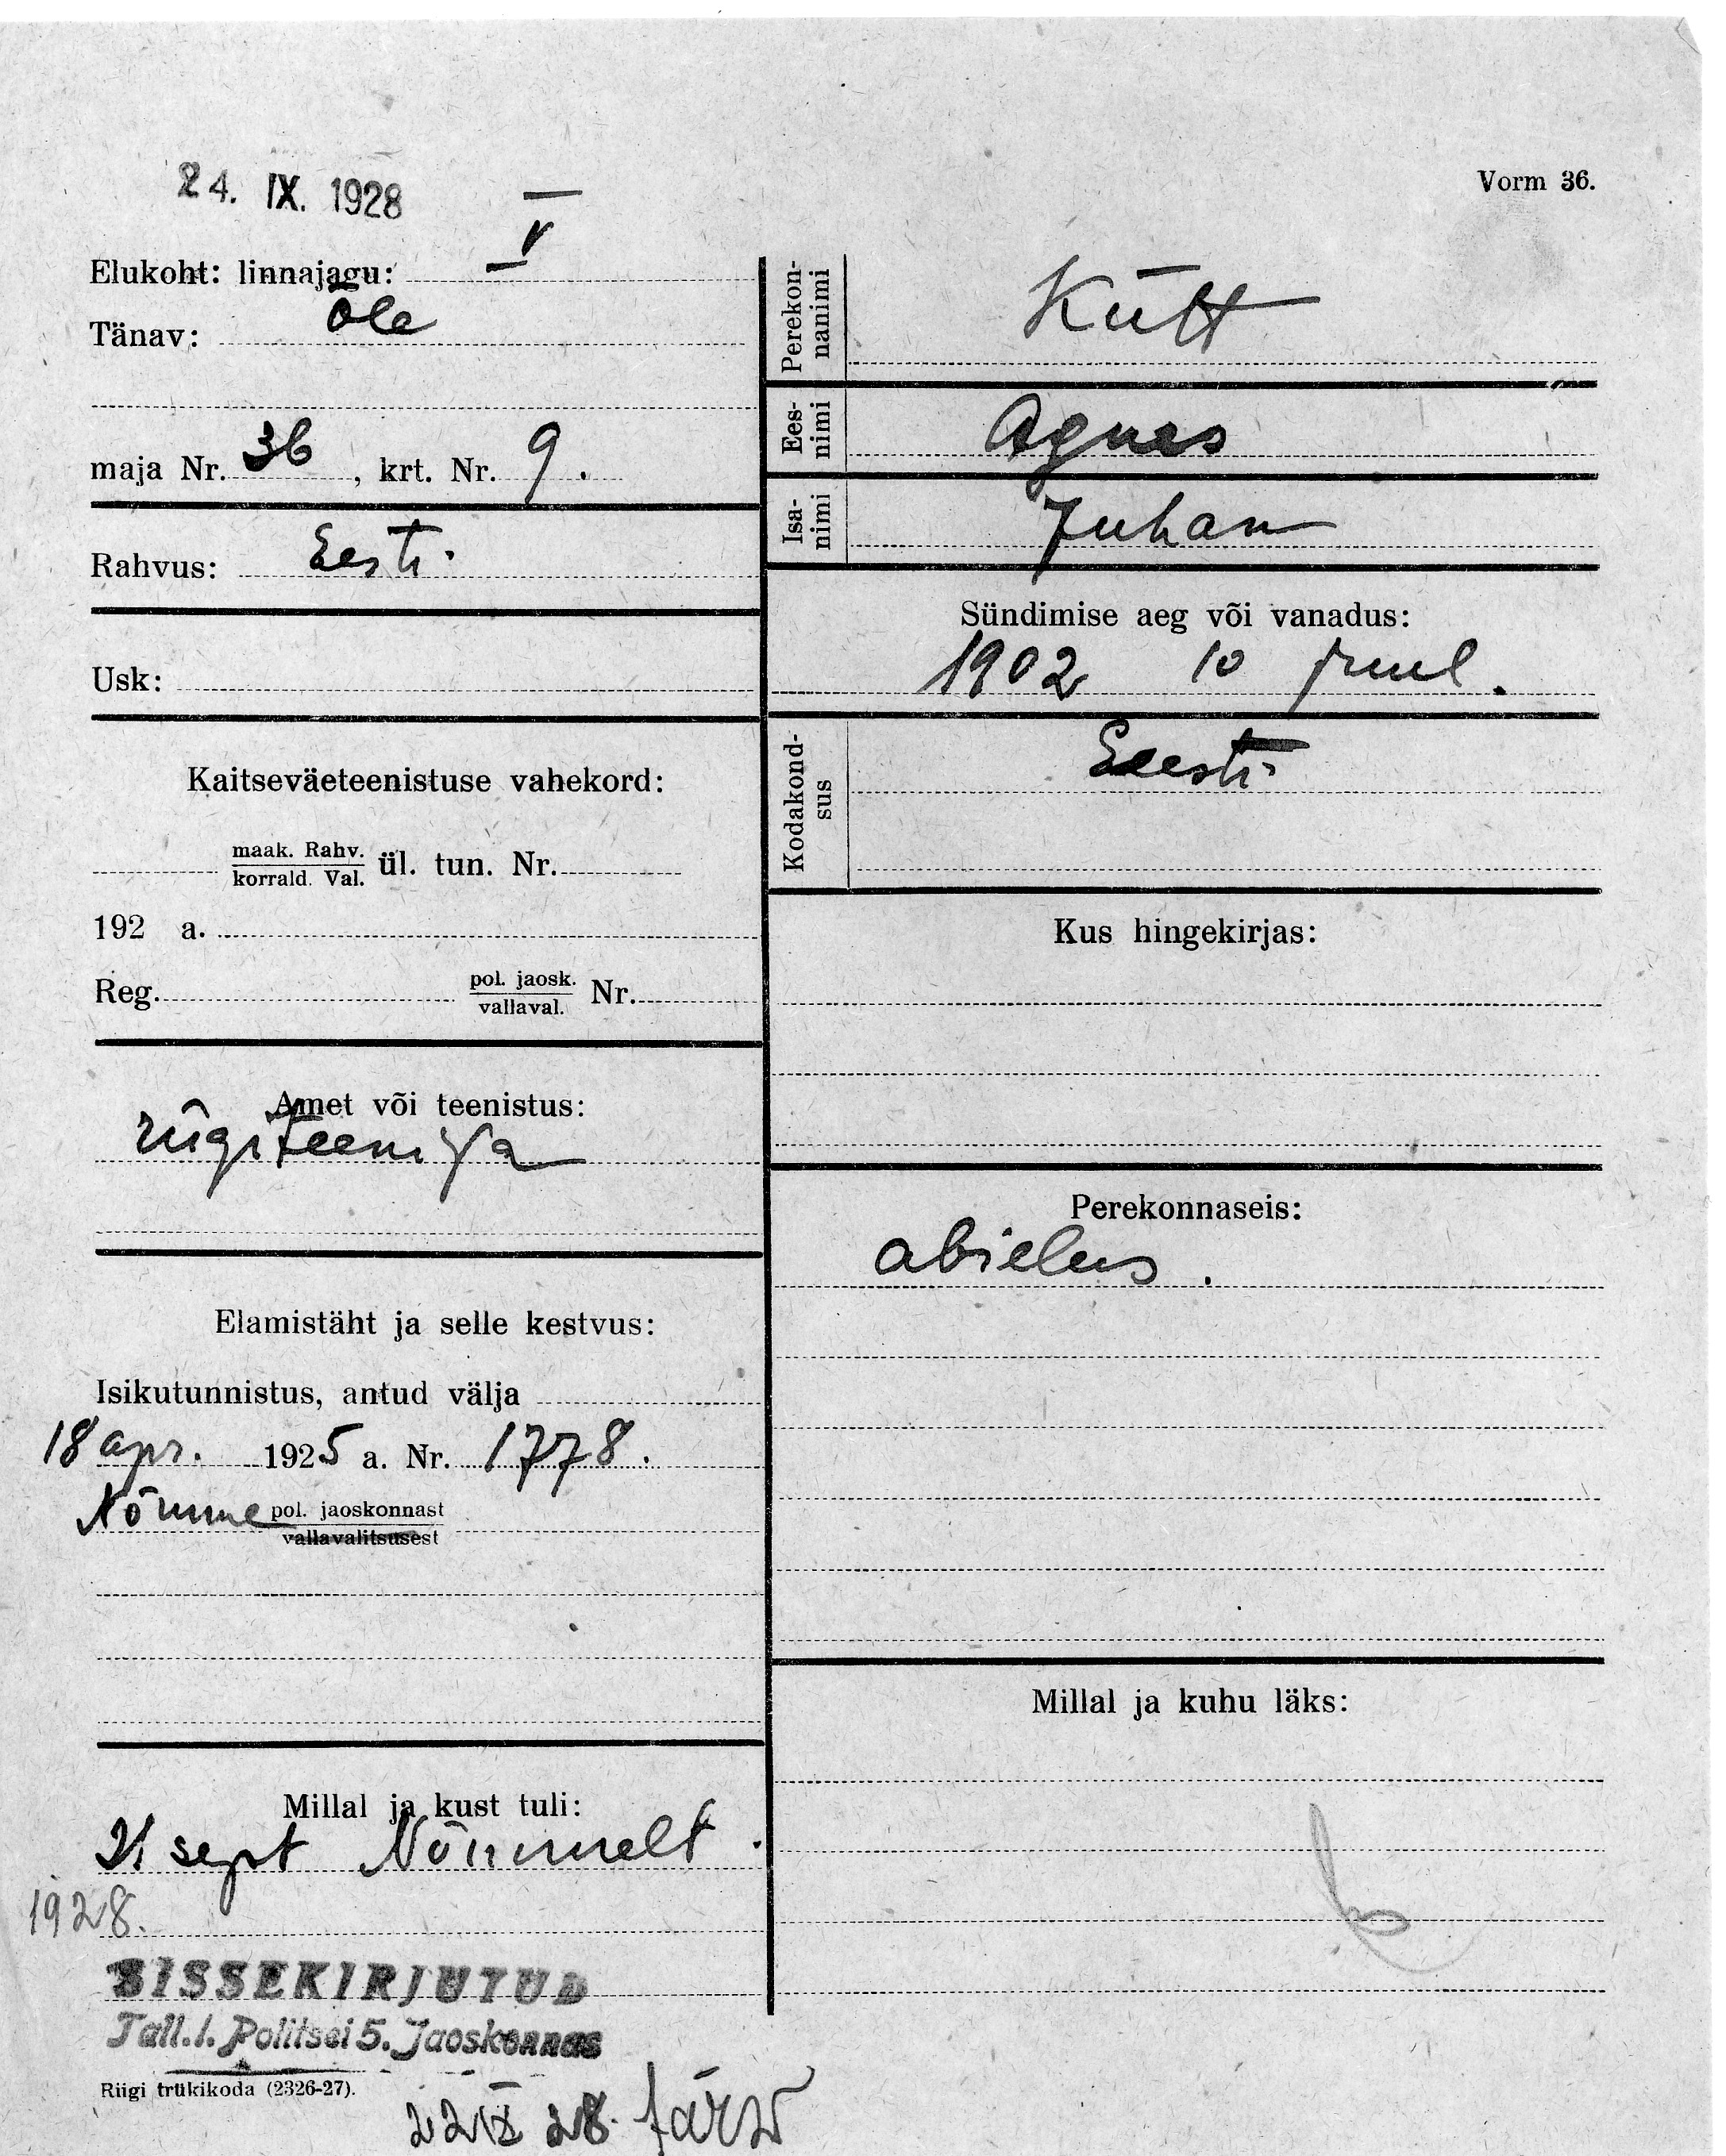 24. IX. 1928
Vorm 36.
Elukoht: linnajagu: V
Tänav: Õle
maja Nr. 36, krt. Nr. 9.
Rahvus: Eesti.
Usk:
Kaitseväeteenistuse vahekord:
maak. Rahv.
korrald. Val. ül. tun. Nr.
192 a.
Reg. pol. jaosk.
vallaval. Nr.
Amet või teenistus:
riigiteenija
Elamistäht ja selle kestvus:
Isikutunnistus, antud välja
18 apr. 1925 a. Nr. 1778.
Nõmme pol. jaoskonnast
vallavalitsusest
Millal ja kust tuli:
21 sept Nõmmelt.
1928.
SISSEKIRJUTUD
Tall. l. Politsei 5. Jaoskonnas
Riigi trükikoda (2326-27).
22 IX 28.
Perekon-
nanimi
Kütt
Ees-
nimi
Agnes
Isa-
nimi
Juhan
Sündimise aeg või vanadus:
1902 10 juul.
Kodakond-
sus
Eesti
Kus hingekirjas:
Perekonnaseis:
abielus.
Millal ja kuhu läks: